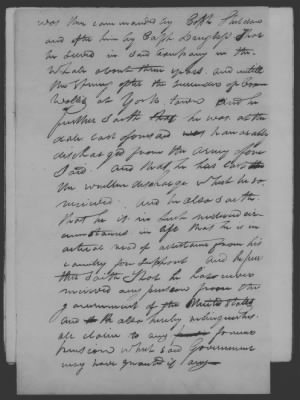 was then commanded by Capt
and after him by Capt Douglass that
he served in said company in the
whole about three years and untill
the Spring after the surrender of Corn
wallis at York town and he
further saith that he was at the
date last aforesaid was honorably
discharged from the army afore
said. and that he has lost the
the written discharge which he so
received. and he also saith
that he is in such reduced cir
cumstances in life that he is in
actual need of assistance from his
country for support and
this saith that he has never
received any pension from the
government of the United States
and he also hereby relinquishes
all claim to any former
pension which said Government
may have granted if any